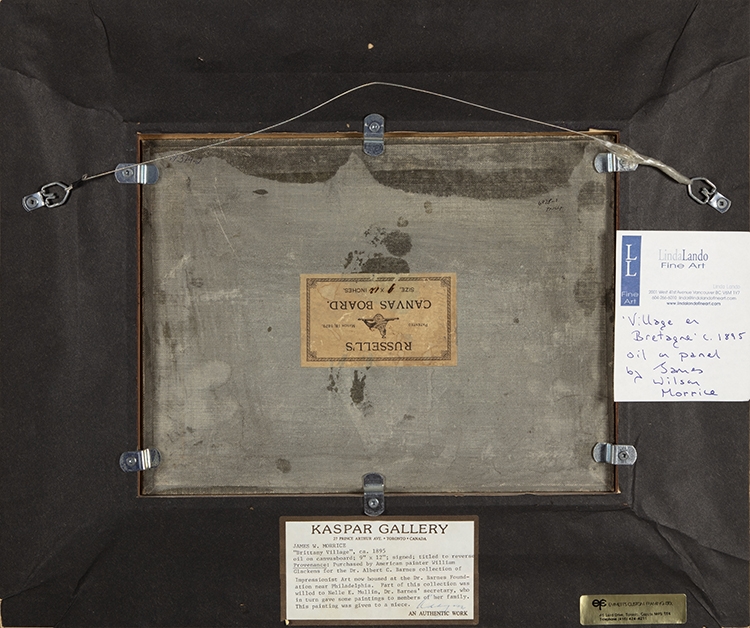 RUSSELL'S
Patented
CANVAS BOARD.
SIZE, 9 X 12 INCHES.
LL
Fine
Art
LindaLando
Fine Art
www.lindalandofineart.com
'Village en
Bretagne' c. 1895
oil on panel
by James
Wilson
Morrice
KASPAR GALLERY
27 PRINCE ARTHUR AVE. • TORONTO • CANADA
JAMES W. MORRICE
"Brittany Village", ca. 1895
oil on canvasboard; 9" x 12"; signed; titled to reverse
Provenance: Purchased by American painter William
Glackens for the Dr. Albert C. Barnes collection of
Impressionist Art now housed at the Dr. Barnes Found-
ation near Philadelphia. Part of this collection was
willed to Nelle E. Mullin, Dr. Barnes' secretary, who
in turn gave some paintings to members of her family.
This painting was given to a niece.
AN AUTHENTIC WORK